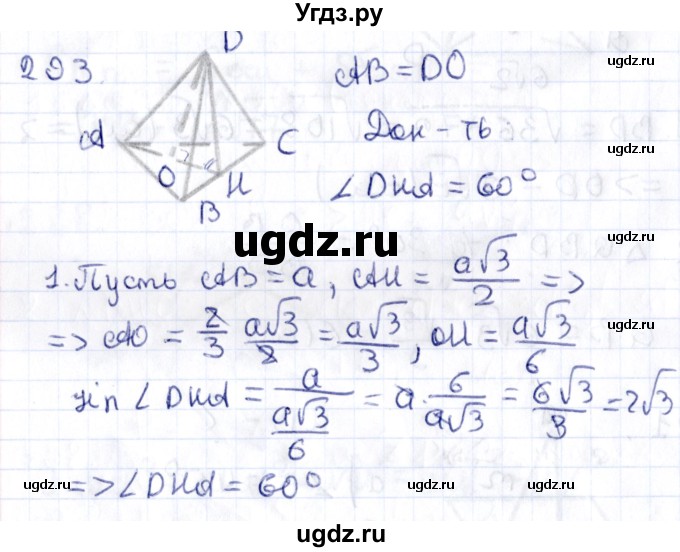 Угдз.ру
293.
D
A
C
O
H
B
AB = DO
Док-ть
∠DHA = 60°
ugdz.ru
ugdz.ru
ugdz.ru
ugdz.ru
1. Пусть AB = a, AH = a√3/2 =>
=> AO = 2/3 a√3/2 = a√3/3, OH = a√3/6
sin ∠DHA = a/(a√3/6) = a · 6/a√3 = 6√3/3 = 2√3
=> ∠DHA = 60°
ugdz.ru
ugdz.ru
ugdz.ru
ugdz.ru